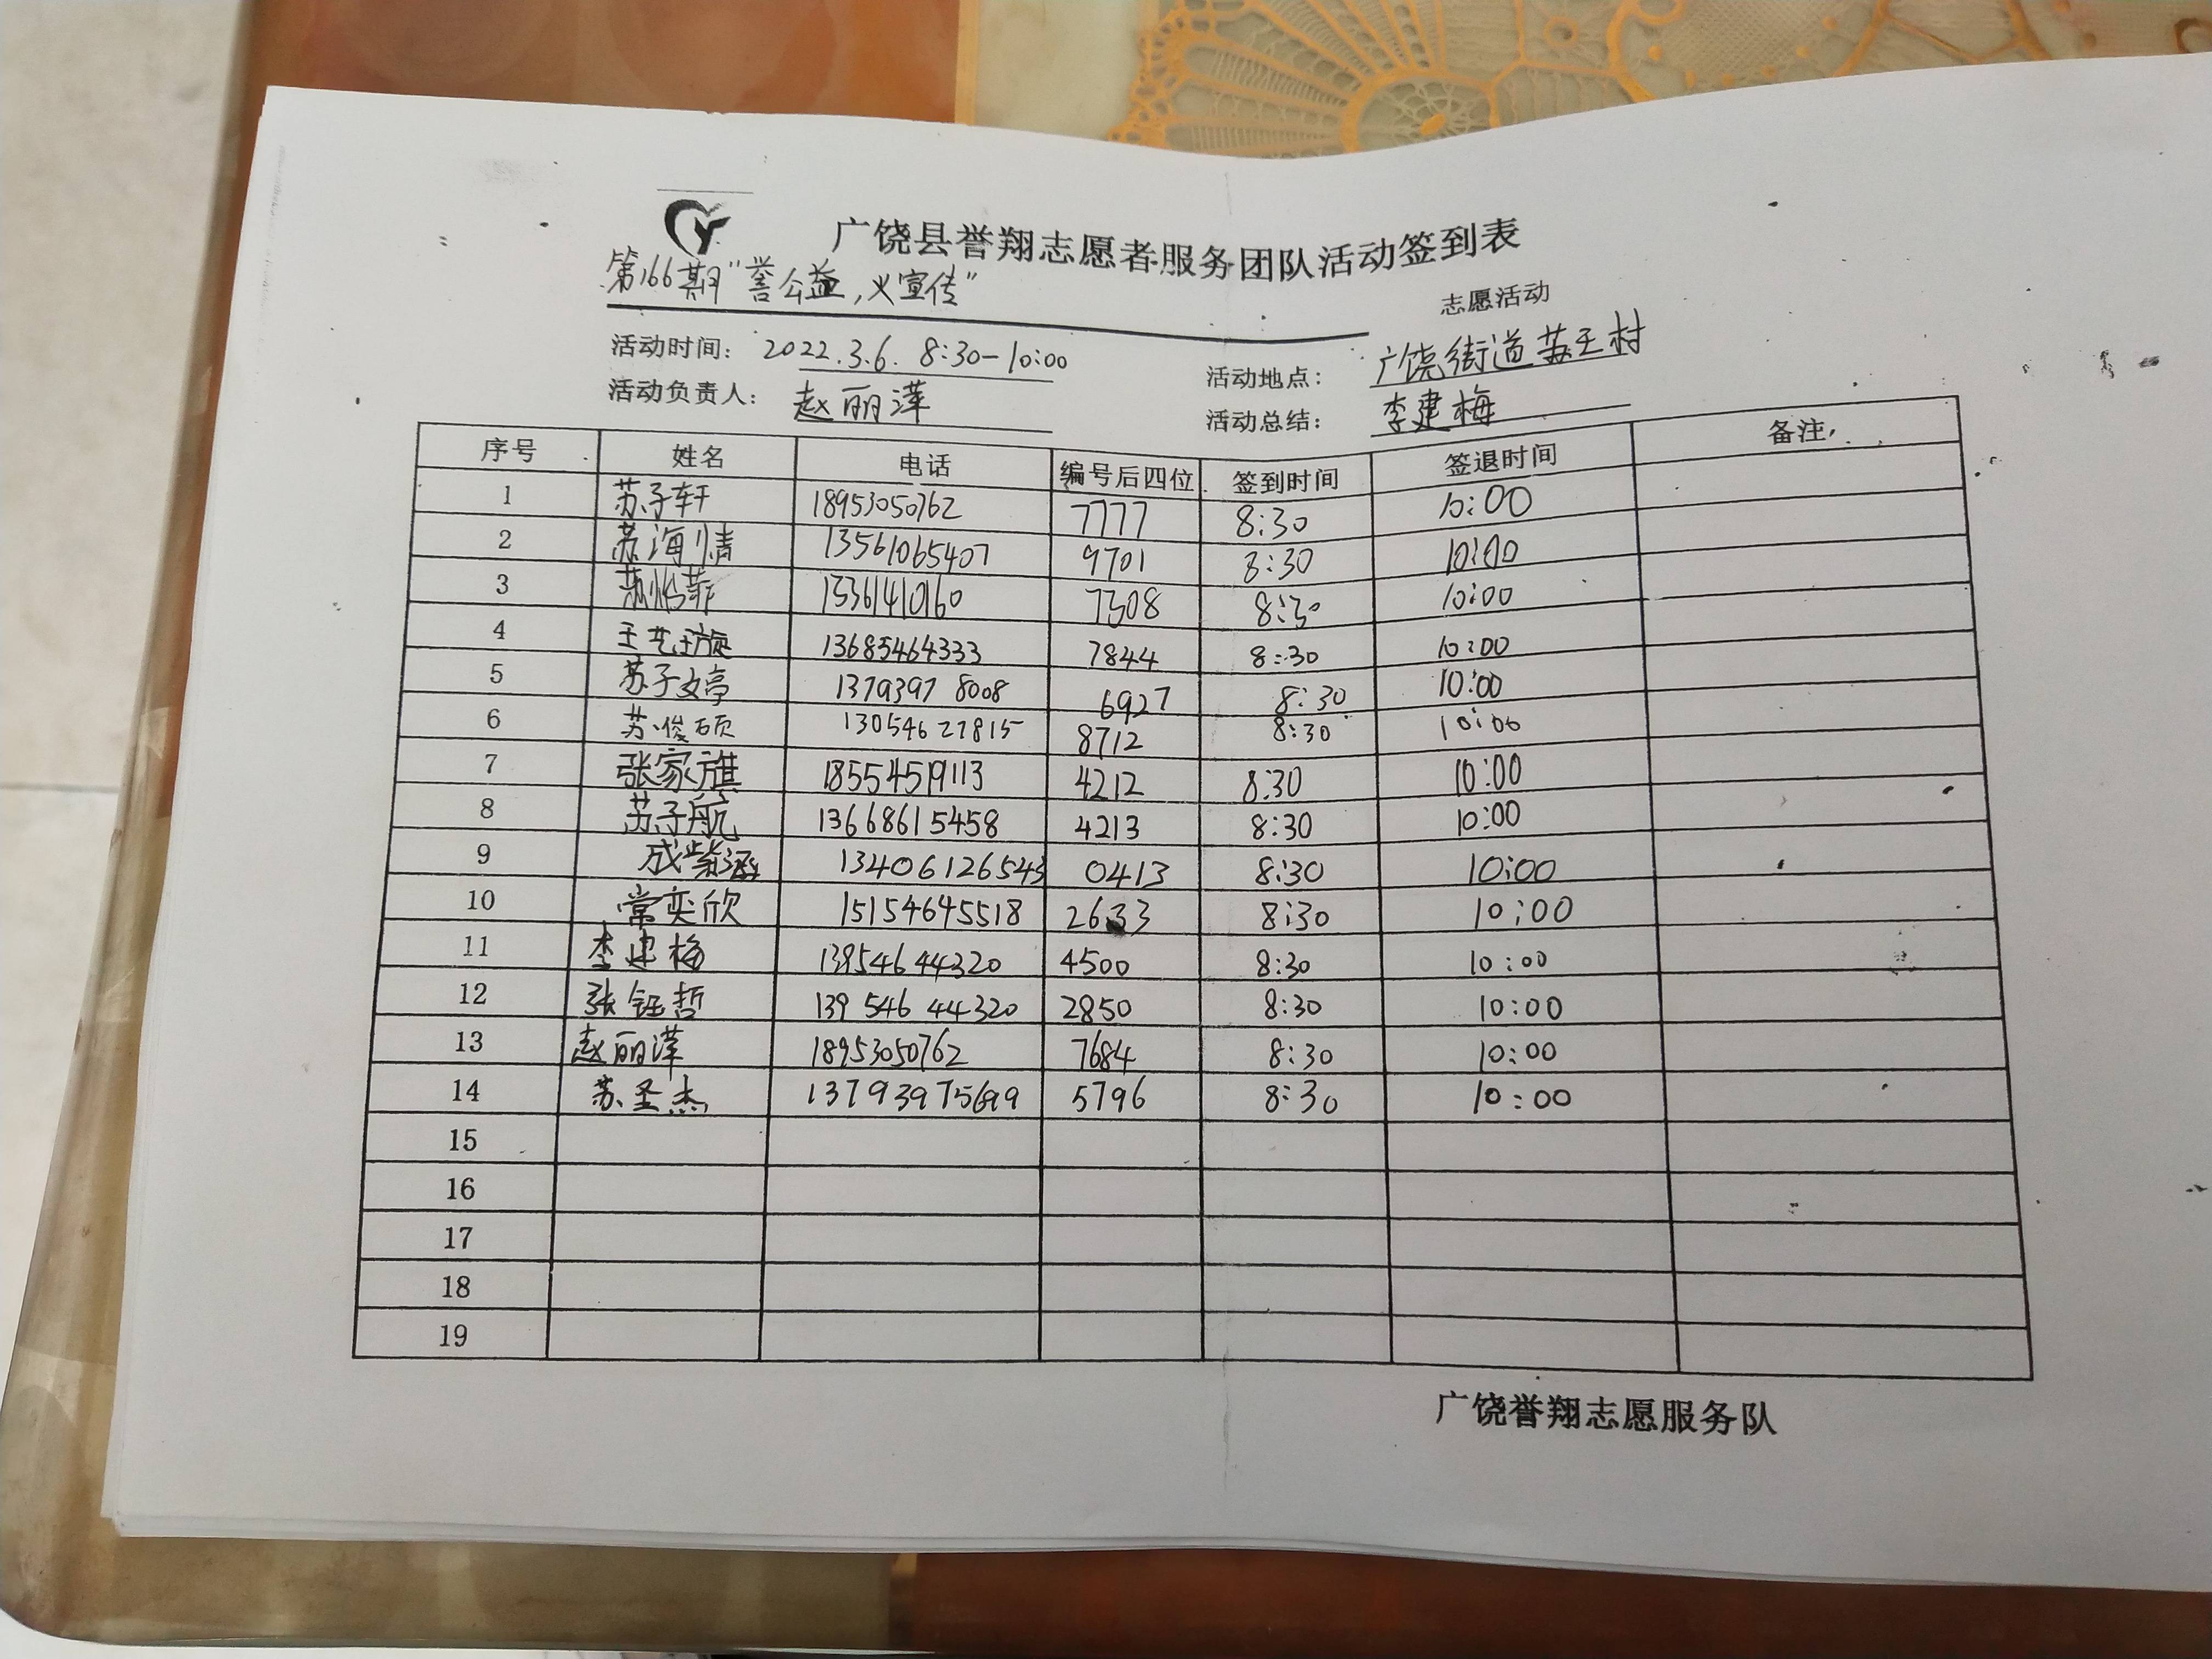 广饶县誉翔志愿者服务团队活动签到表
第166期"誉公益,义宣传" 志愿活动
活动时间: 2022.3.6. 8:30-10:00 活动地点: 广饶街道苏王村
活动负责人: 赵丽萍 活动总结: 李建梅
序号 姓名 电话 编号后四位 签到时间 签退时间 备注
1 苏子轩 18953050762 7777 8:30 10:00
2 苏海情 13561065407 9701 8:30 10:00
3 苏怡菲 15361410160 7308 8:30 10:00
4 王艺璇 13685464333 7844 8:30 10:00
5 苏子文亭 13793978008 6927 8:30 10:00
6 苏俊硕 13054627815 8712 8:30 10:00
7 张家旗 18554519113 4212 8:30 10:00
8 苏子航 13668615458 4213 8:30 10:00
9 成紫涵 13406126543 0413 8:30 10:00
10 常奕欣 15154645518 2633 8:30 10:00
11 李建梅 13954644320 4500 8:30 10:00
12 张钰哲 13954644320 2850 8:30 10:00
13 赵丽萍 18953050762 7684 8:30 10:00
14 苏圣杰 13793975699 5796 8:30 10:00
15
16
17
18
19
广饶誉翔志愿服务队